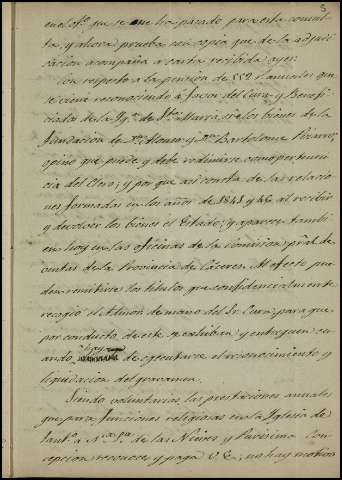 5
en el of.º que se me ha pasado para esta consul-
ta, y ahora prueba con copia que de la adjudi-
cacion acompaña a carta recibida ayer.
Con respecto a la pencion de 552 r.s anuales que
se viene reconociendo á favor del Cura y Benefi-
ciados de la Ygª de Stª Maria, sre los bienes de la
fundacion de Dº Alonso y Dº Bartolome Pizarro,
opino que puede y debe redimirse como pertenen-
cia del Clero; y por que asi consta de las relacio-
nes formadas en los años de 1841 y 46 al recibir
y devolver los bienes el Estado; y aparece tambi-
en hoy en las oficinas de la comision pral de
ventas de la Provincia de Cáceres. Al efecto pue-
den remitirse los titulos que confidencialmente
recogió el Admor de mano del Sr Cura, para que
por conducto de este se exhiban y entreguen cu-
ando haya de egecutarse el reconocimiento y
liquidacion del gravamen.
Siendo voluntarias las prestaciones anuales
que para funciones religiosas en la Iglesia de
Santº á Nra Srª de las Nieves y Purisima Con-
cepcion reconoce y paga V. E., no hay motivo